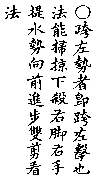 〇跨左勢者卽跨左擊也
法能掃掠下殺右脚右手
提水勢向前進步雙剪看
法